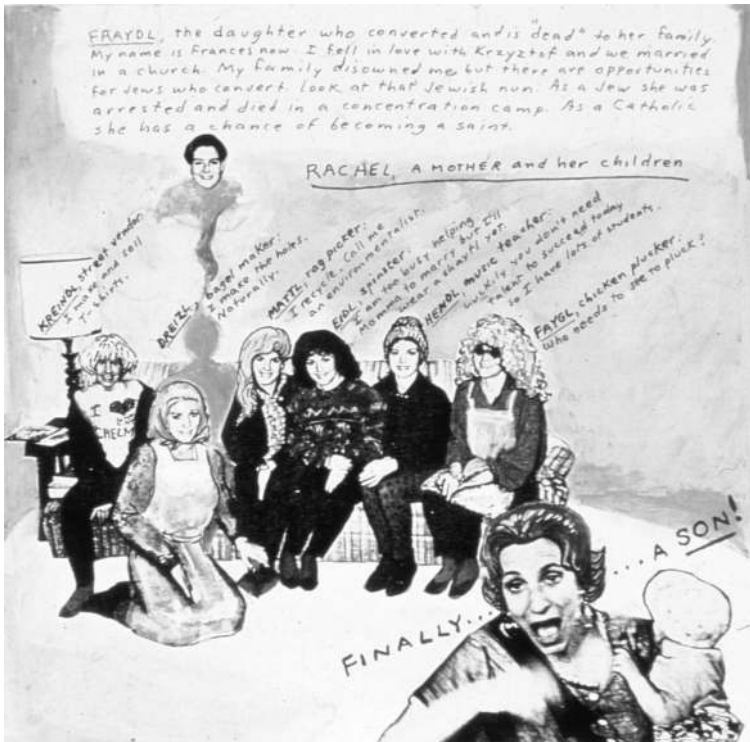 FRAYDL, the daughter who converted and is "dead" to her family.
My name is Frances now. I fell in love with Krzyztof and we married
in a church. My family disowned me, but there are opportunities
for Jews who convert. Look at that Jewish nun. As a Jew she was
arrested and died in a concentration camp. As a Catholic
she has a chance of becoming a saint.
RACHEL, A MOTHER and her children
KREINDL, street vendor:
I make and sell
T-shirts.
DREIZL, bagel maker:
I make the holes.
Naturally.
MAYTL, rag picker:
I recycle. Call me
an environmentalist.
EIDL, spinster:
I am too busy helping
Momma to marry but I'll
wear a shaytl yet.
HENDL, music teacher:
Luckily you don't need
talent to succeed today
so I have lots of students.
FAYGL, chicken plucker:
Who needs to see to pluck?
I
CHELM
FINALLY...
...A SON!